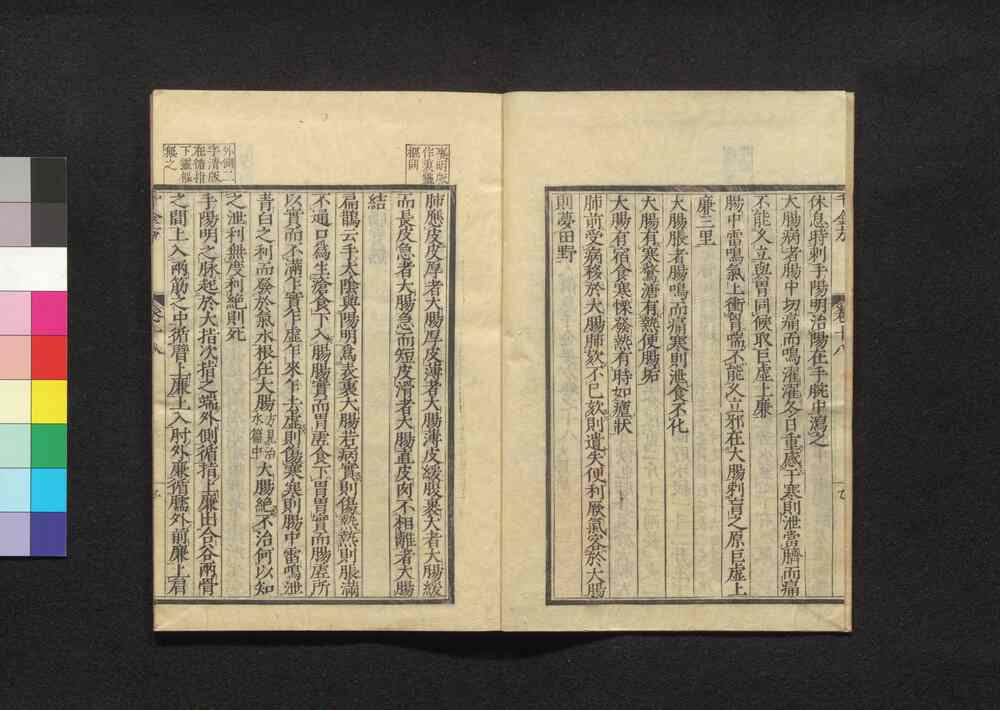 千金方
卷十八
休息時刺手陽明治陽在手腕中瀉之
大腸病者腸中切痛而鳴濯濯冬日重感于寒則泄當臍而痛
不能久立與胃同候取巨虛上廉
腸中雷鳴氣上衝胷喘不能久立邪在大腸刺肓之原巨虛上
廉三里
大腸脹者腸鳴而痛寒則泄食不化
大腸有寒鶩溏有熱便腸垢
大腸有宿食寒慄發熱有時如瘧狀
肺前受病移於大腸肺欬不已欬則遺失便利厥氣客於大腸
則夢田野
肺應皮皮厚者大腸厚皮薄者大腸薄皮緩腹裹大者大腸緩
而長皮急者大腸急而短皮滑者大腸直皮肉不相離者大腸
結
扁鵲云手太陰與陽明爲表裏大腸若病實則傷熱熱則脹滿
不通口爲生瘡食下入腸腸實而胃虛食下胃胃實而腸虛所
以實而不滿乍實乍虛乍來乍去虛則傷寒寒則腸中雷鳴泄
青白之利而發於氣水根在大腸方見治水篇中大腸絕不治何以知
之泄利無度利絕則死
手陽明之脉起於大指次指之端外側循指上廉出合谷兩骨
之間上入兩筋之中循臂上廉上入肘外廉循臑外前廉上肩
外側二
字清版
在循指
下靈樞
無之
千金方